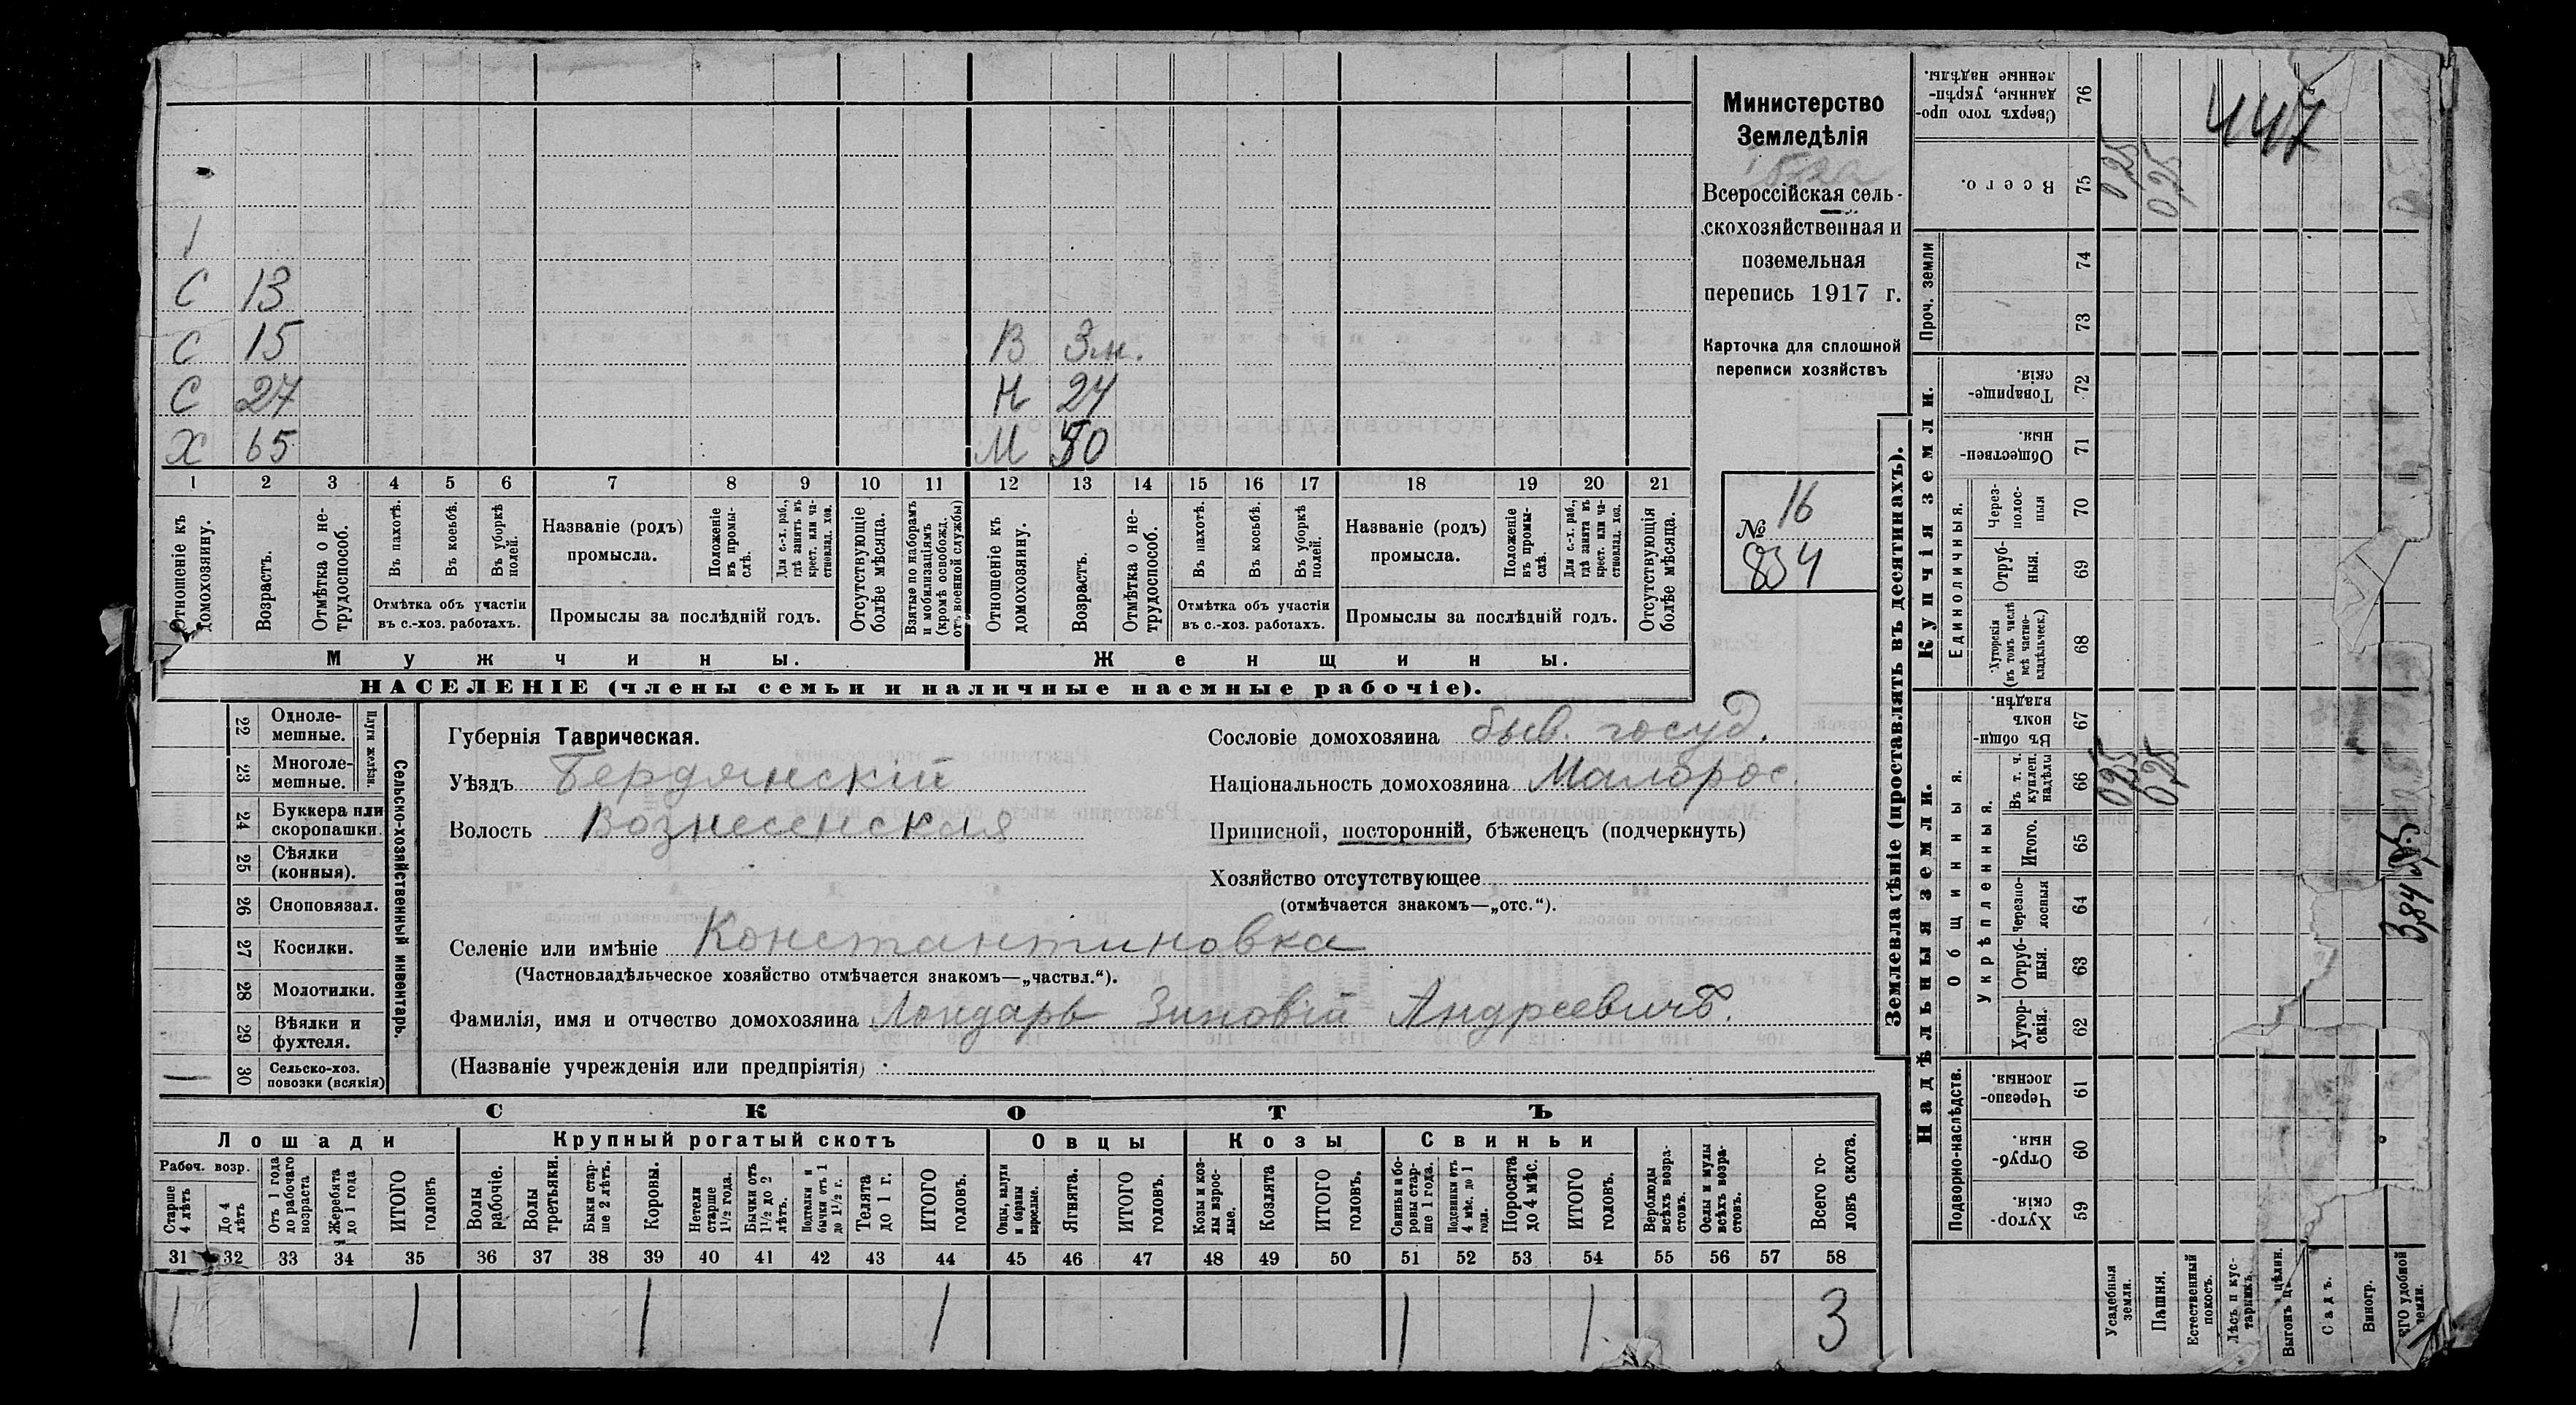 Министерство
Земледѣлія
Всероссійская сель-
скохозяйственная и
поземельная
перепись 1917 г.
Карточка для сплошной
переписи хозяйствъ
№ 16
834
1
С 13
С 15 В 3 м.
С 27 Н 24
Х 65 М 50
1 2 3 4 5 6 7 8 9 10 11 12 13 14 15 16 17 18 19 20 21
Отношеніе къ домохозяину.
Возрастъ.
Отмѣтка о не-трудоспособ.
Въ пахотѣ.
Въ косьбѣ.
Въ уборкѣ полей.
Отмѣтка объ участіи
въ с.-хоз. работахъ.
Названіе (родъ)
промысла.
Положеніе въ промы-слѣ.
Для с.-х. раб., гдѣ занятъ въ крест. или ча-стновлад. хоз.
Промыслы за послѣдній годъ.
Отсутствующіе болѣе мѣсяца.
Взятые по наборамъ и мобилизаціямъ (кромѣ освобожд. отъ военной службы)
Отношеніе къ домохозяину.
Возрастъ.
Отмѣтка о не-трудоспособ.
Въ пахотѣ.
Въ косьбѣ.
Въ уборкѣ полей.
Отмѣтка объ участіи
въ с.-хоз. работахъ.
Названіе (родъ)
промысла.
Положеніе въ промы-слѣ.
Для с.-х. раб., гдѣ занята въ крест. или ча-стновлад. хоз.
Промыслы за послѣдній годъ.
Отсутствующія болѣе мѣсяца.
Мужчины. Женщины.
НАСЕЛЕНІЕ (члены семьи и наличные наемные рабочіе).
Сельско-хозяйственный инвентарь.
Плуги желѣзн.
22 Одноле-мешные.
23 Многоле-мешные.
24 Буккера или скоропашки.
25 Сѣялки (конныя).
26 Сноповязал.
27 Косилки.
28 Молотилки.
29 Вѣялки и фухтеля.
30 Сельско-хоз. повозки (всякія)
Губернія Таврическая.
Уѣздъ Бердянскій
Волость Вознесенская
Сословіе домохозяина быв. госуд.
Національность домохозяина Малорос.
Приписной, посторонній, бѣженецъ (подчеркнуть)
Хозяйство отсутствующее
(отмѣчается знакомъ—„отс.“).
Селеніе или имѣніе Константиновка
(Частновладѣльческое хозяйство отмѣчается знакомъ—„частвл.“).
Фамилія, имя и отчество домохозяина Лондарь Зиновій Андреевичъ.
(Названіе учрежденія или предпріятія)
СКОТЪ
Лошади Крупный рогатый скотъ Овцы Козы Свиньи
Рабоч. возр.
Старше 4 лѣтъ
До 4 лѣтъ
Отъ 1 года до рабочаго возраста
Жеребята до 1 года
ИТОГО головъ
Волы рабочіе.
Волы третьяки.
Быки стар-ше 2 лѣтъ.
Коровы.
Нетели старше 1½ года.
Бычки отъ 1½ до 2 лѣтъ.
Подтелки и бычки отъ 1 до 1½ г.
Телята до 1 г.
ИТОГО головъ.
Овцы, валухи и бараны взрослые.
Ягнята.
ИТОГО головъ.
Козы и коз-лы взрос-лые.
Козлята
ИТОГО головъ.
Свиньи и бо-ровы стар-ше 1 года.
Подсвинки отъ 4 мѣс. до 1 года.
Поросята до 4 мѣс.
ИТОГО головъ.
Верблюды всѣхъ возра-стовъ.
Ослы и мулы всѣхъ возра-стовъ.
Всего го-ловъ скота.
31 32 33 34 35 36 37 38 39 40 41 42 43 44 45 46 47 48 49 50 51 52 53 54 55 56 57 58
1 1 1 1 1 1 3
Землевладѣніе (проставлять въ десятинахъ).
Надѣльныя земли. Купчія земли. Проч. земли
Подворно-наслѣдств.
Общинныя.
Укрѣпленныя.
Единоличныя.
59 Хутор-скія.
60 Отруб-ныя.
61 Черезпо-лосныя.
62 Хутор-скія.
63 Отруб-ныя.
64 Черезпо-лосныя
65 Итого.
66 Въ т. ч. куплен. надѣлы
67 Въ общин-номъ владѣн.
68 Хуторскія (въ томъ числѣ всѣ частно-владѣльческ.)
69 Отруб-ныя.
70 Через-полос-ныя
71 Обществен-ныя.
72 Товарище-скія.
73
74
75 Всего.
76 Сверхъ того про-данные, укрѣп-ленные надѣлы.
Усадебныя земли.
Пашня.
Естественный покосъ.
Лѣсъ и кус-тарникъ.
Выгонъ
Садъ.
Виногр.
удобной земли.
0,25
0,25
0,25
0,25
447
384